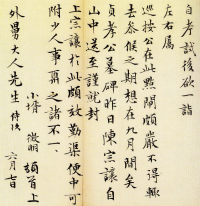 自考試後欲一詣
左右属
巡按公在此點閘頗嚴不得輒
去參候之期想在九月間矣
貞孝公墓碑昨日陳宗讓自
山中送至謹就封
上宗讓於此頗效勤渠便中可
附少人事篇之諸不一
小壻徵明頓首上
外舅大人先生侍次
六月七日